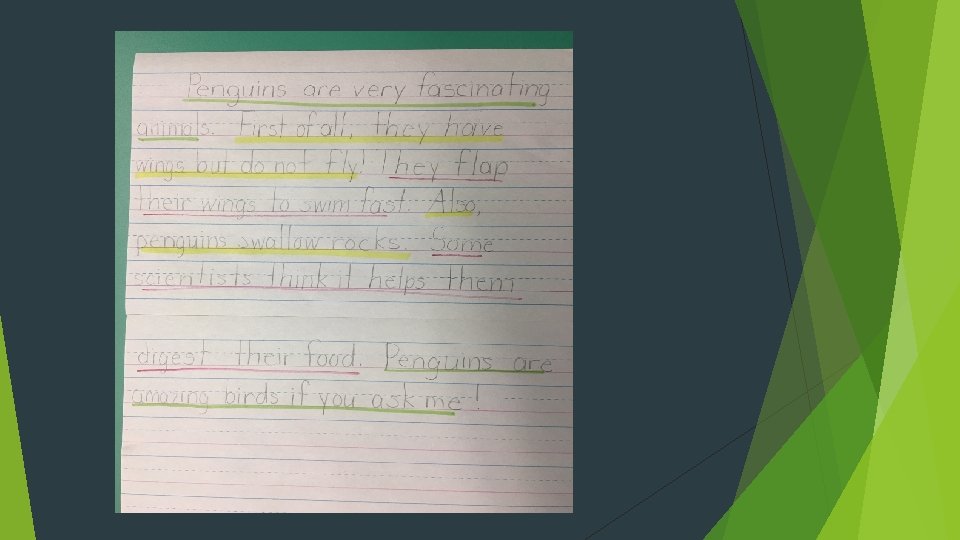 Penguins are very fascinating
animals. First of all, they have
wings but do not fly! They flap
their wings to swim fast. Also,
penguins swallow rocks. Some
scientists think it helps them
digest their food. Penguins are
amazing birds if you ask me!